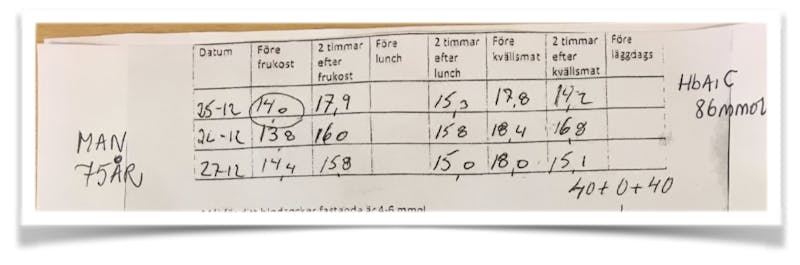 Datum | Före frukost | 2 timmar efter frukost | Före lunch | 2 timmar efter lunch | Före kvällsmat | 2 timmar efter kvällsmat | Före läggdags
25-12 | 14,0 | 17,9 | | 15,3 | 17,8 | 14,2 |
26-12 | 13,8 | 16,0 | | 15,8 | 18,4 | 16,8 |
27-12 | 14,4 | 15,8 | | 15,0 | 18,0 | 15,1 |
HbA1C
86mmol
MAN
75ÅR
40+0+40
blodsocker fastande är 4-6 mmol